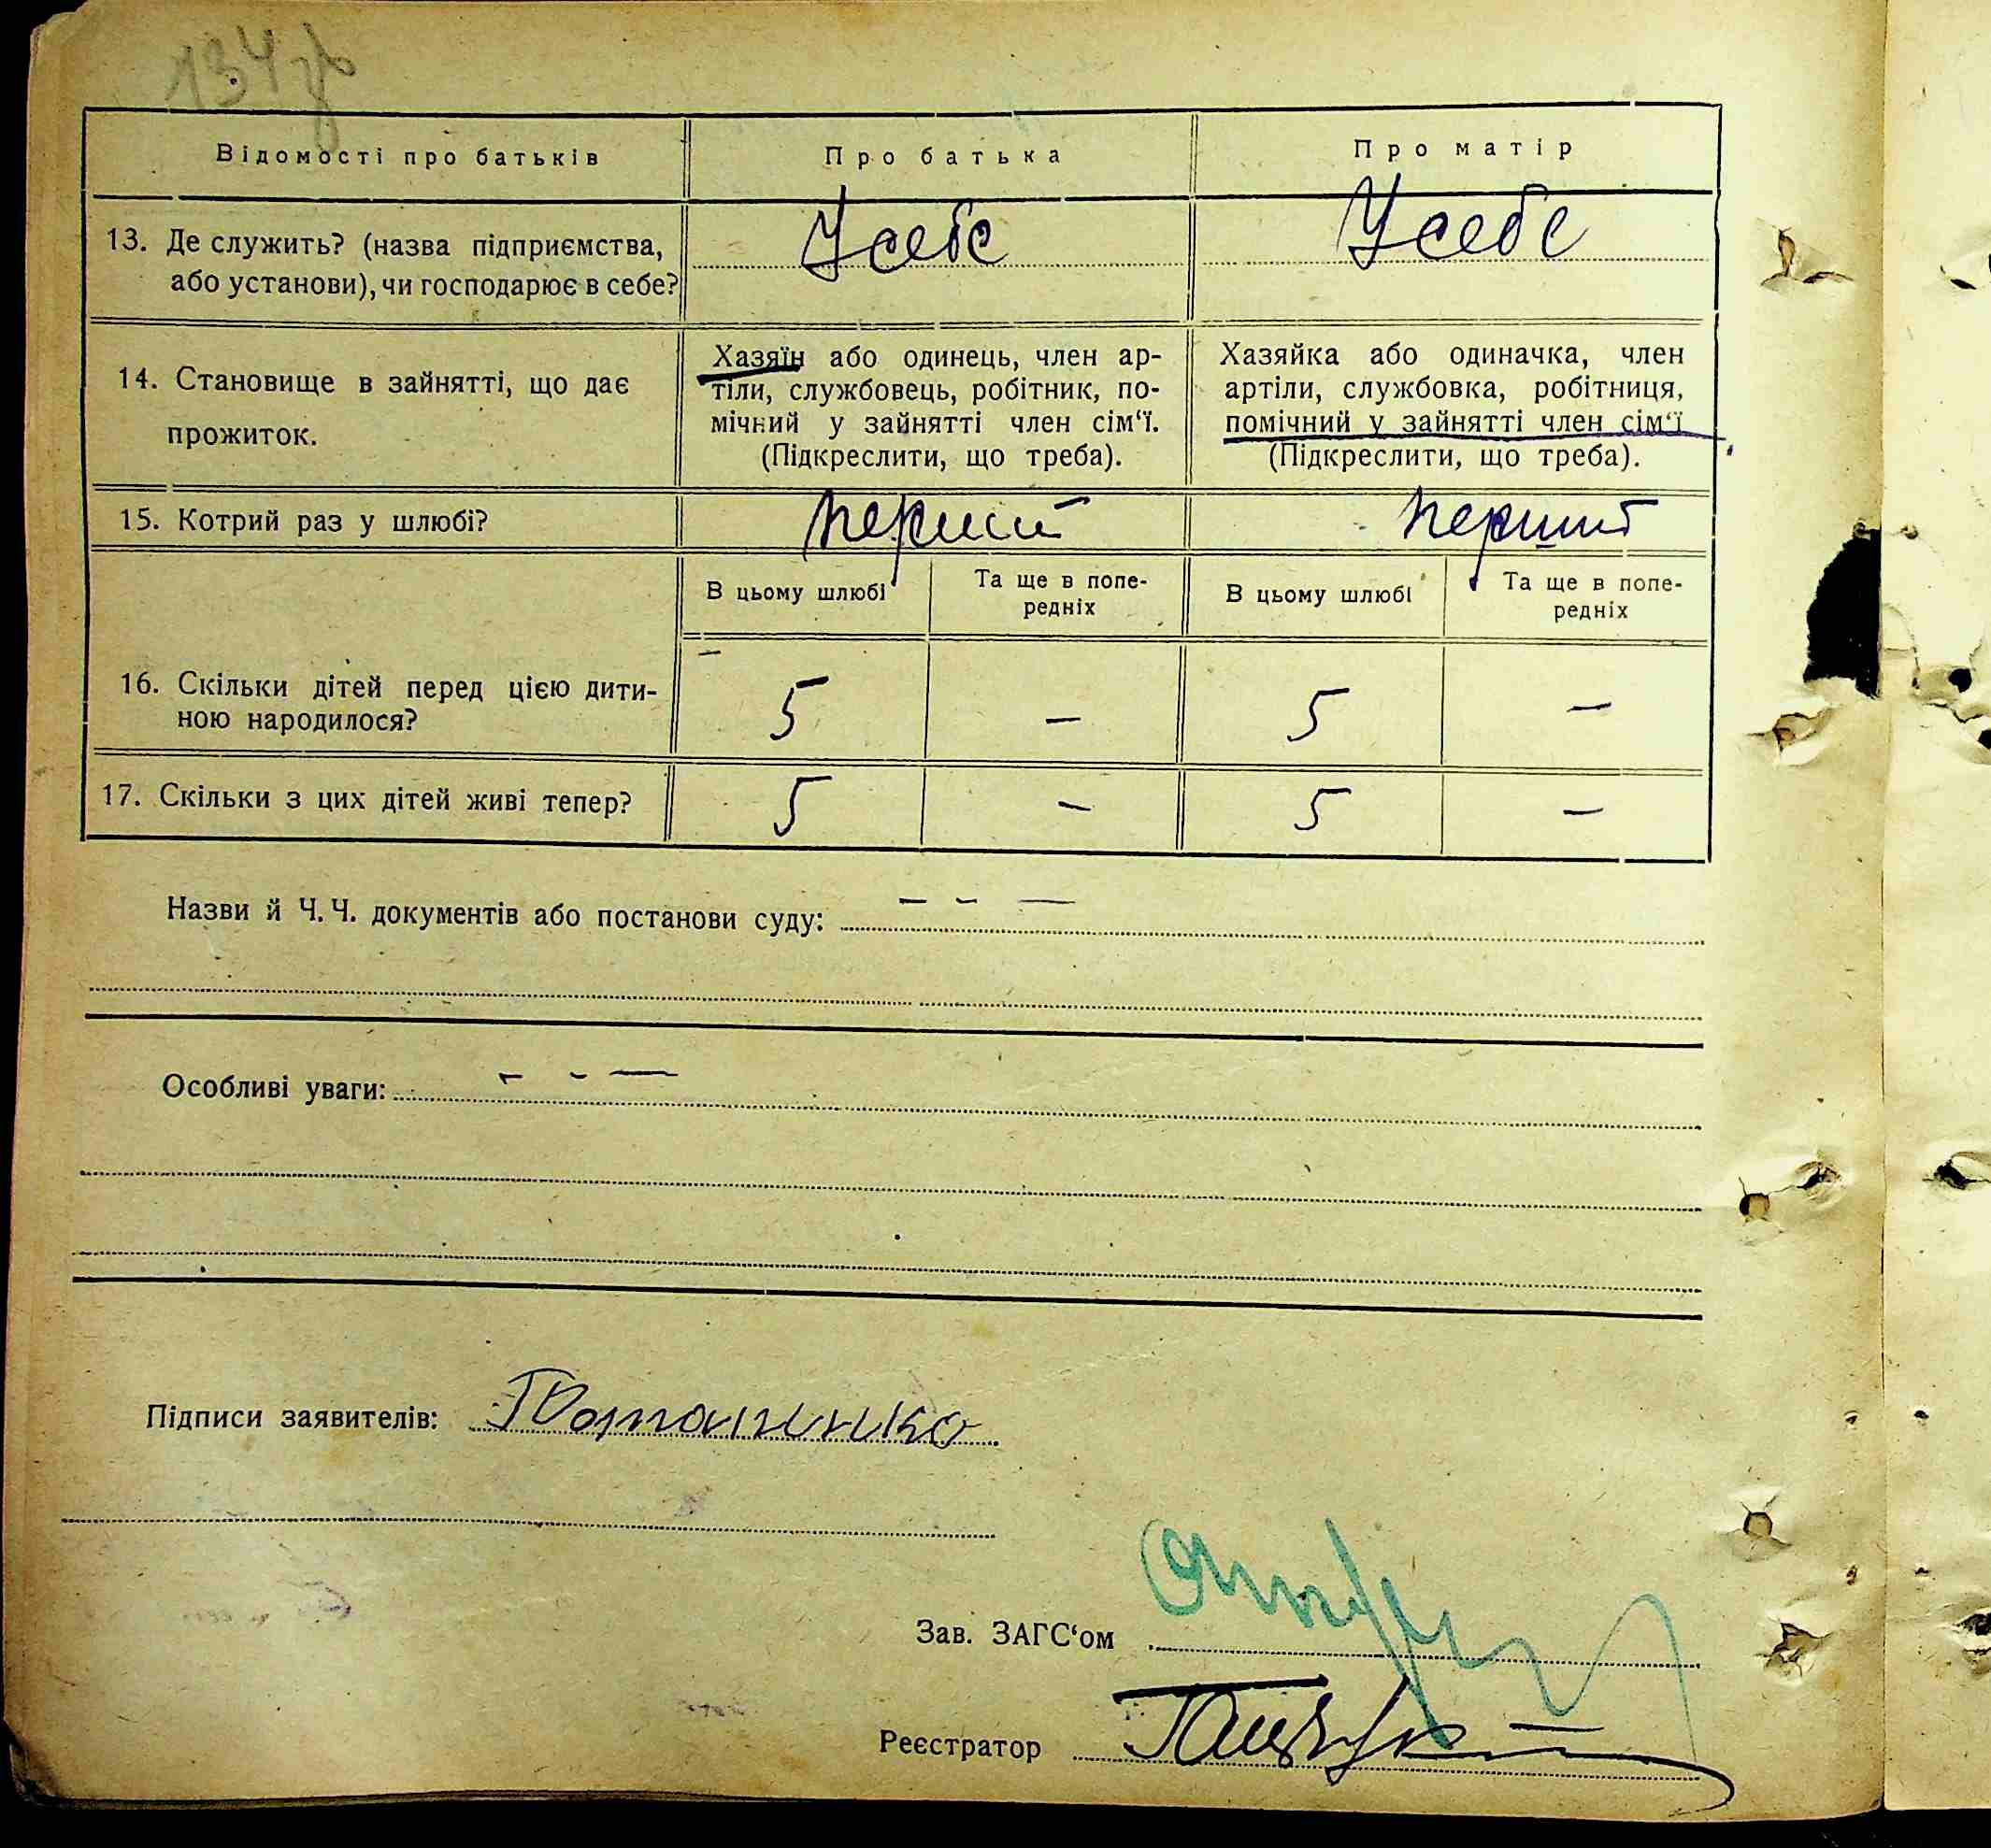 134 зв
Відомості про батьків Про батька Про матір
13. Де служить? (назва підприємства, або установи), чи господарює в себе? У себе У себе
14. Становище в зайнятті, що дає прожиток.
Хазяїн або одинець, член ар-
тіли, службовець, робітник, по-
мічний у зайнятті член сім‘ї.
(Підкреслити, що треба).
Хазяйка або одиначка, член
артіли, службовка, робітниця,
помічний у зайнятті член сім‘ї
(Підкреслити, що треба).
15. Котрий раз у шлюбі? перший перший
В цьому шлюбі Та ще в попе-
редніх В цьому шлюбі Та ще в попе-
редніх
16. Скільки дітей перед цією дити-
ною народилося? 5 — 5 —
17. Скільки з цих дітей живі тепер? 5 — 5 —
Назви й Ч. Ч. документів або постанови суду: — - —
Особливі уваги: — - —
Підписи заявителів:
Зав. ЗАГС‘ом
Реєстратор